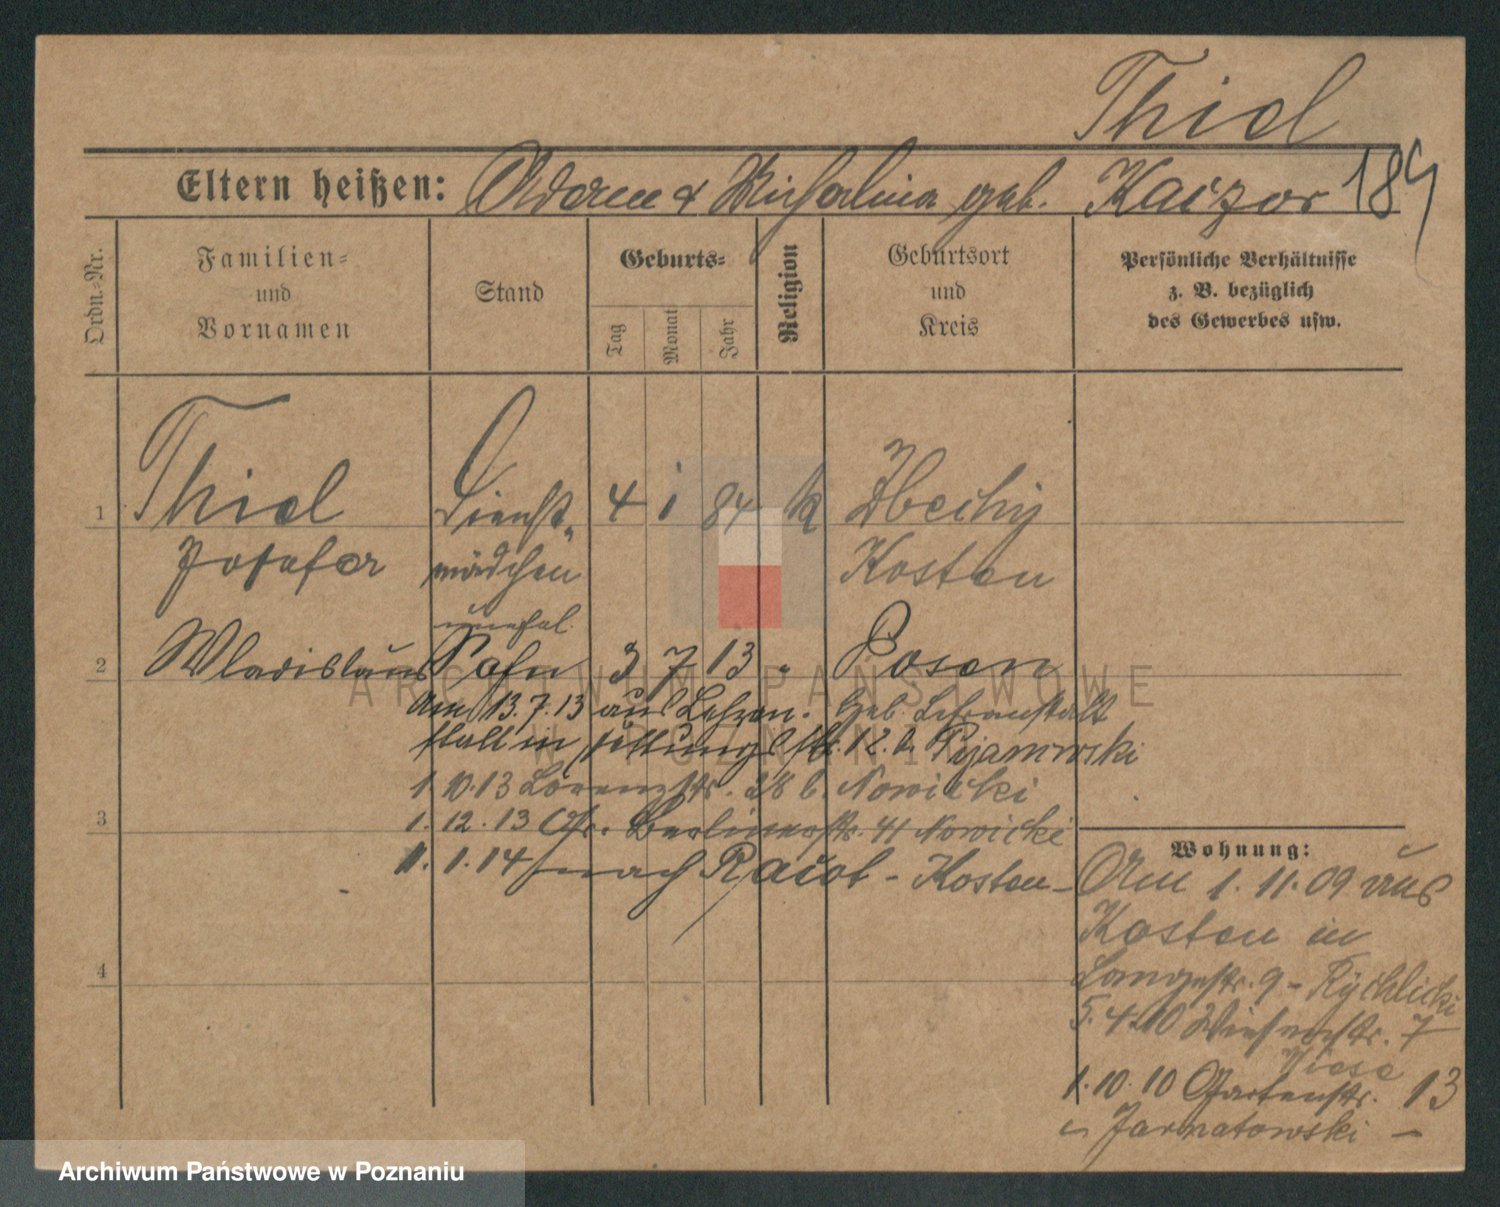 Thiel
Eltern heißen: Adam & Michalina geb. Kaizer 184
Ordn.-Nr.
Familien-
und
Vornamen
Stand
Geburts-
Tag
Monat
Jahr
Religion
Geburtsort
und
Kreis
Persönliche Verhältnisse
z. B. bezüglich
des Gewerbes usw.
1 Thiel Dienst- 4 1 84 k Zbechy
Josefa mädchen Kosten
unehel.
2 Wladislaus Sohn 3 7 13 " Posen
Am 13.7.13 aus Geb. Lehranstalt
12. b.
1.10.13 Lorenzstr. 28 b. Nowicki
3
1.12.13 Gr. Berlinerstr. 41 Nowicki
11.1.14 nach Racot - Kosten -
Wohnung:
Am 1.11.09 aus
Kosten in
4
Langestr. 9 - Rychlicki
5.4.10 7
Wiese
1.10.10 Gartenstr. 13
Jarnatowski -
ARCHIWUM PAŃSTWOWE
W POZNANIU
Archiwum Państwowe w Poznaniu